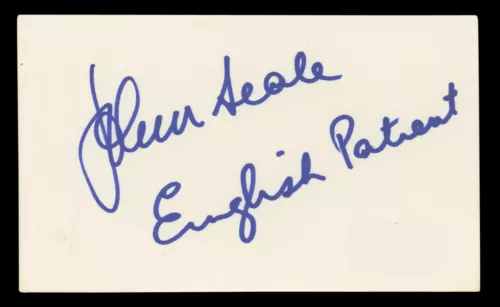 John Seale
English Patient